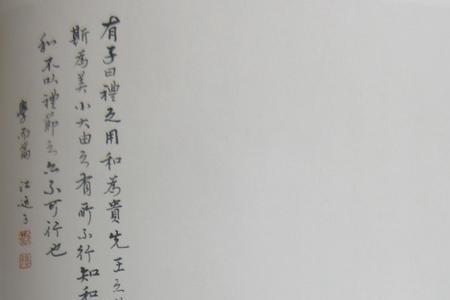 有子曰禮之用和為貴先王之
斯為美小大由之有所不行知和
和不以禮節之亦不可行也
學而篇